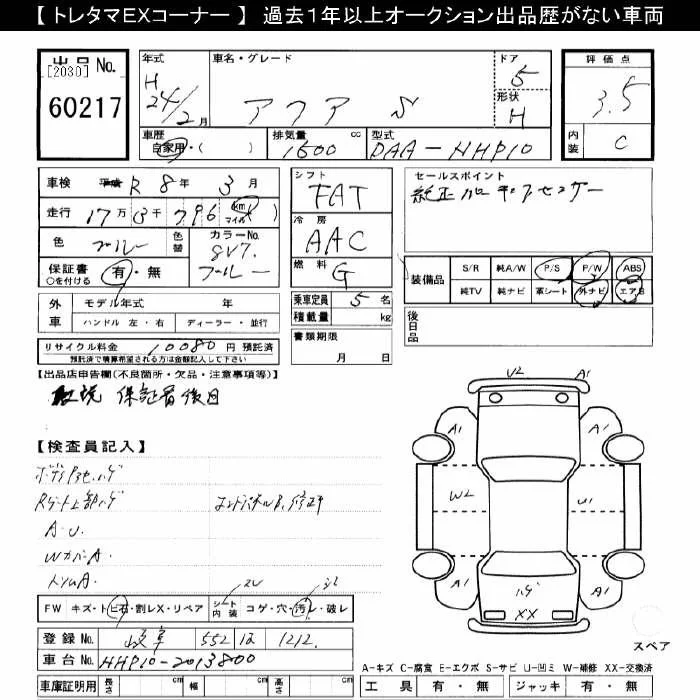 【 トレタマEXコーナー 】 過去1年以上オークション出品歴がない車両
出品No.
[2030]
60217
年式 H 24/2月
車名・グレード アクア S
ドア 5
形状 H
評価点 3.5
内装 C
車歴 自家用・( )
排気量 1500 cc
型式 DAA-HHP10
車検 平成 R 8年 3月
走行 17万 3千 796 km マイル
色 ブルー
色替
カラーNo. 8V7.
ブルー
保証書 有・無
○を付ける
外車 モデル年式 年
ハンドル 左・右 ディーラー・並行
リサイクル料金 10080 円 預託済
預託済で精算希望される方は金額記入して下さい
シフト FAT
冷房 AAC
燃料 G
乗車定員 5 名
積載量 kg
書類期限
月 日
セールスポイント
装備品 S/R 純A/W P/S P/W ABS
純TV 純ナビ 革シート 外ナビ エアB
後日品
【出品店申告欄(不良箇所・欠品・注意事項等)】
取説 保証書後日
【検査員記入】
Rゲート上部ハゲ
A・U.
Wカバー A.
トリムA.
FW キズ・ト ビ石・割レX・リペア シート内装 コゲ・穴・汚レ・破レ
登録No. 岐阜 552 は 1212.
車台No. HHP10-2013800
車庫証明用 長さ cm 幅 cm 高さ cm
U2 A1
A1 A1
W2 U1
A1 A1
ハゲ
XX
スペア
A-キズ C-腐食 E-エクボ S-サビ U-凹ミ W-補修 XX-交換済
工具 有・無 ジャッキ 有・無